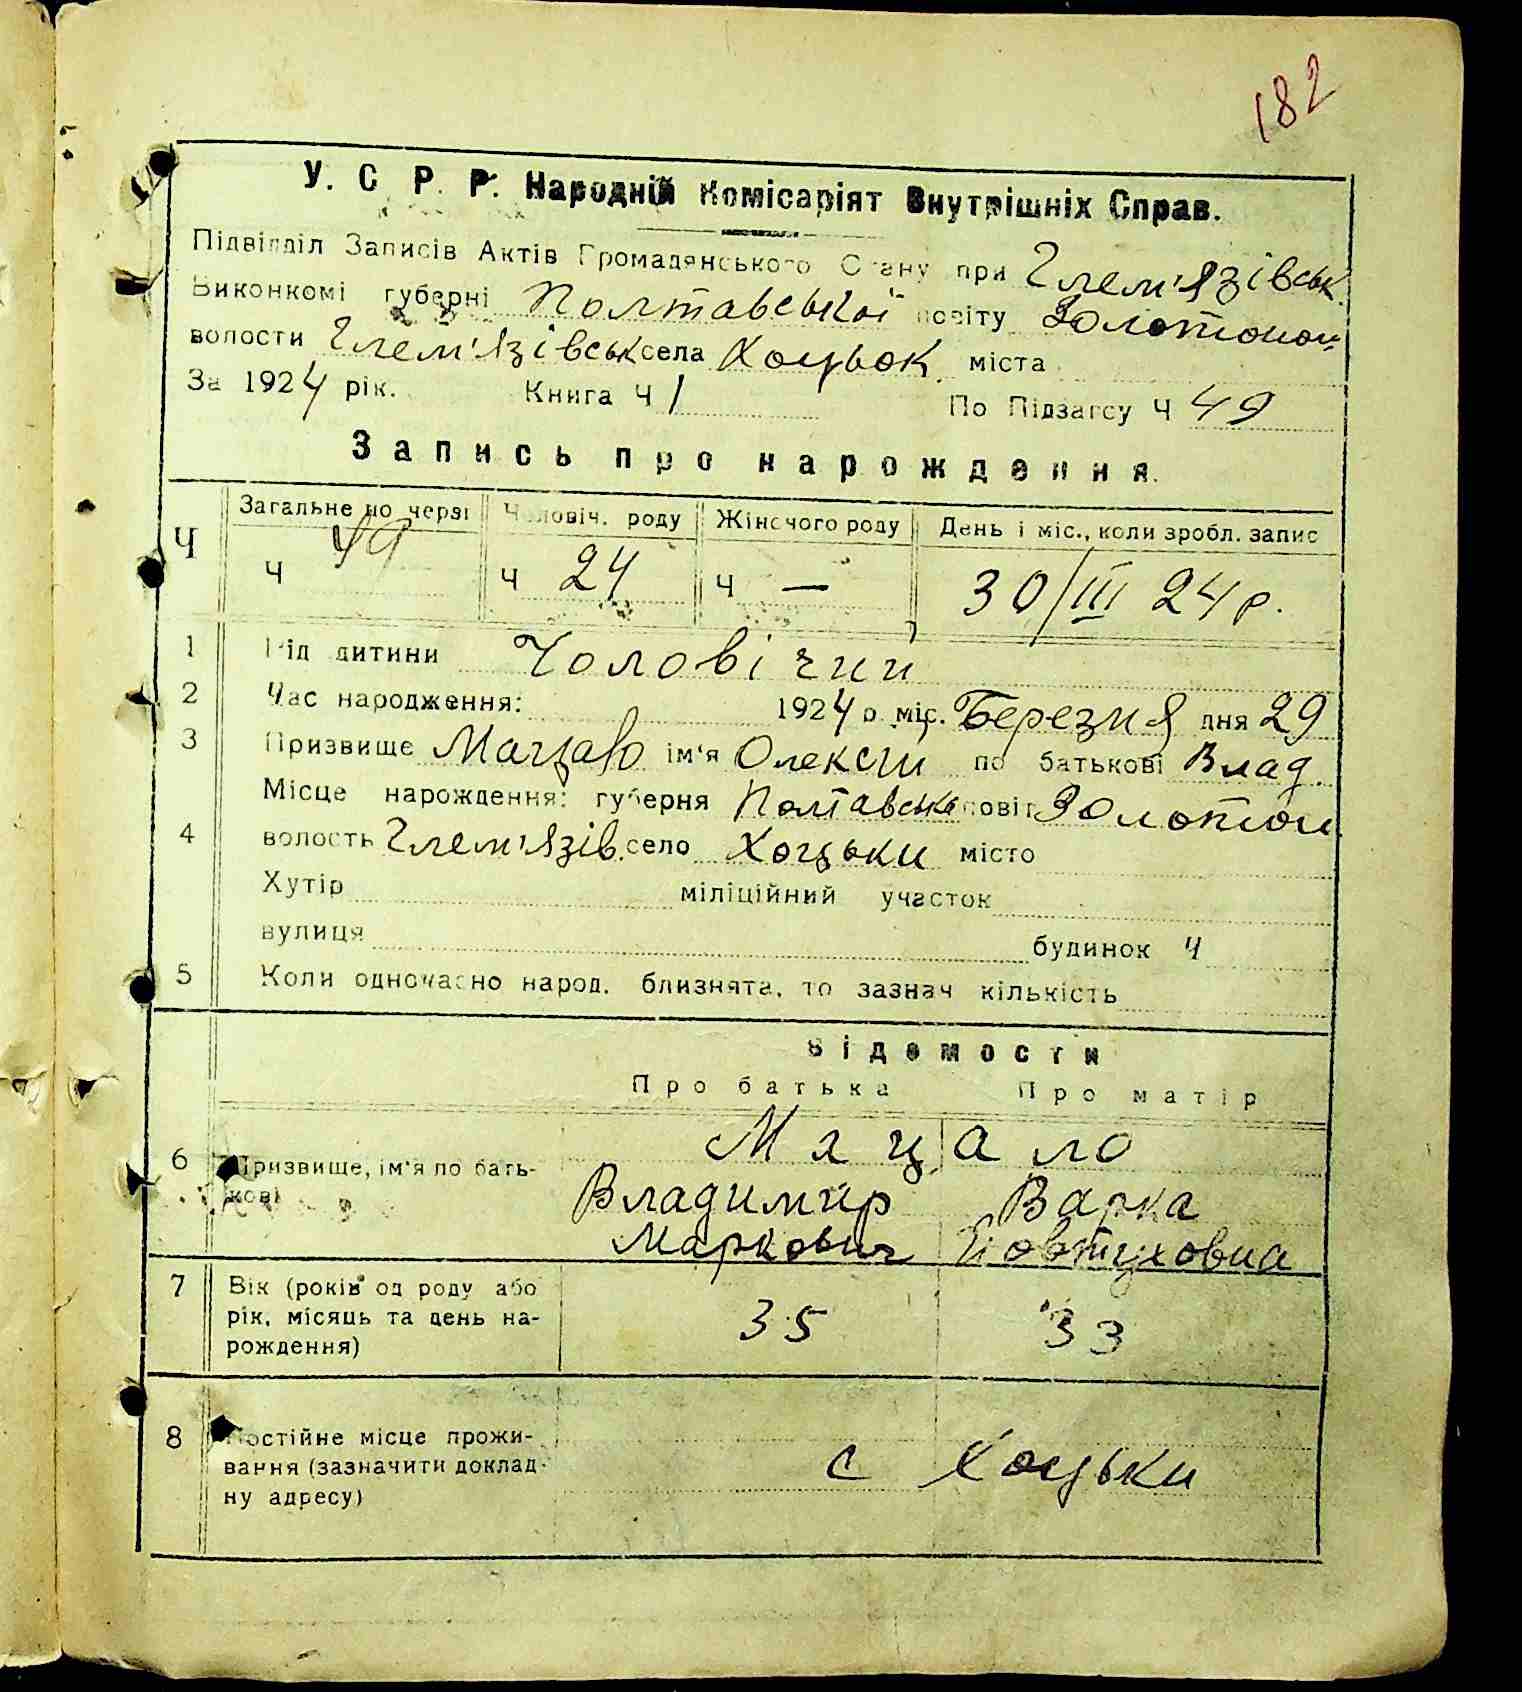 182
У. С. Р. Р. Народній Комісаріят Внутрішніх Справ.
Підвідділ Записів Актів Громадянського Стану при Глем'язівськ.
Виконкомі губерні Полтавської повіту Золотонош.
волости Глем'язівськ села Хоцьок міста
За 1924 рік. Книга Ч 1 По Підзагсу Ч 49
Запись про нарождення.
Ч Загальне по черзі Чоловіч. роду Жіночого роду День і міс., коли зробл. запис
Ч 49 Ч 24 Ч — 30/III 24 р.
1 Рід дитини Чоловічий
2 Час народження: 1924 р. міс. Березня дня 29
3 Призвище Мацало ім'я Олексій по батькові Влад.
Місце нарождення: губерня Полтавська повіт Золотон
4 волость Глем'язів. село Хоцьки місто
Хутір міліційний участок
вулиця будинок Ч
5 Коли одночасно народ. близнята, то зазнач кількість
Відомости
Про батька Про матір
6 Призвище, ім'я по бать-кові Мацало
Владимир Варка
Маркович Йовтуховна
7 Вік (років од роду або
рік, місяць та день на- 35 33
рождення)
8 Постійне місце прожи-
вання (зазначити доклад- с Хоцьки
ну адресу)